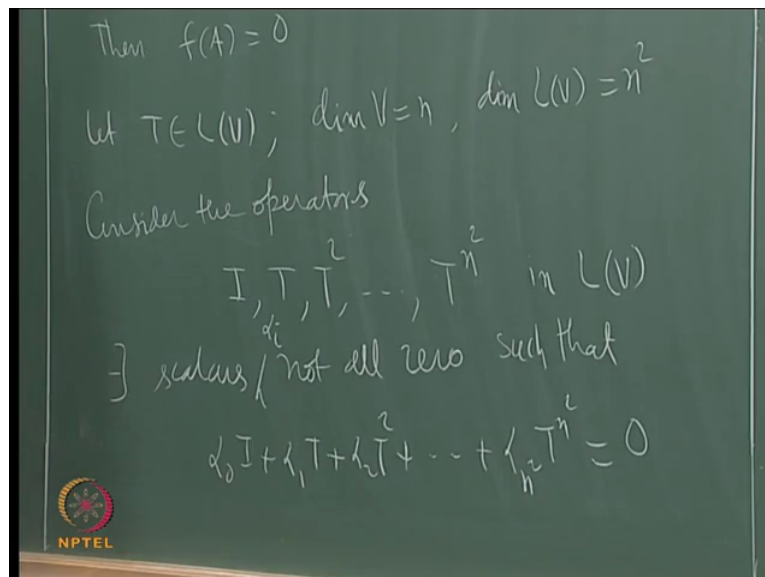 Then f(A) = 0
let T ∈ L(V); dim V = n, dim L(V) = n²
Consider the operators
I, T, T², ..., T^{n²} in L(V)
∃ scalars αᵢ not all zero such that
α₀I + α₁T + α₂T² + ... + α_{n²}T^{n²} = 0
NPTEL